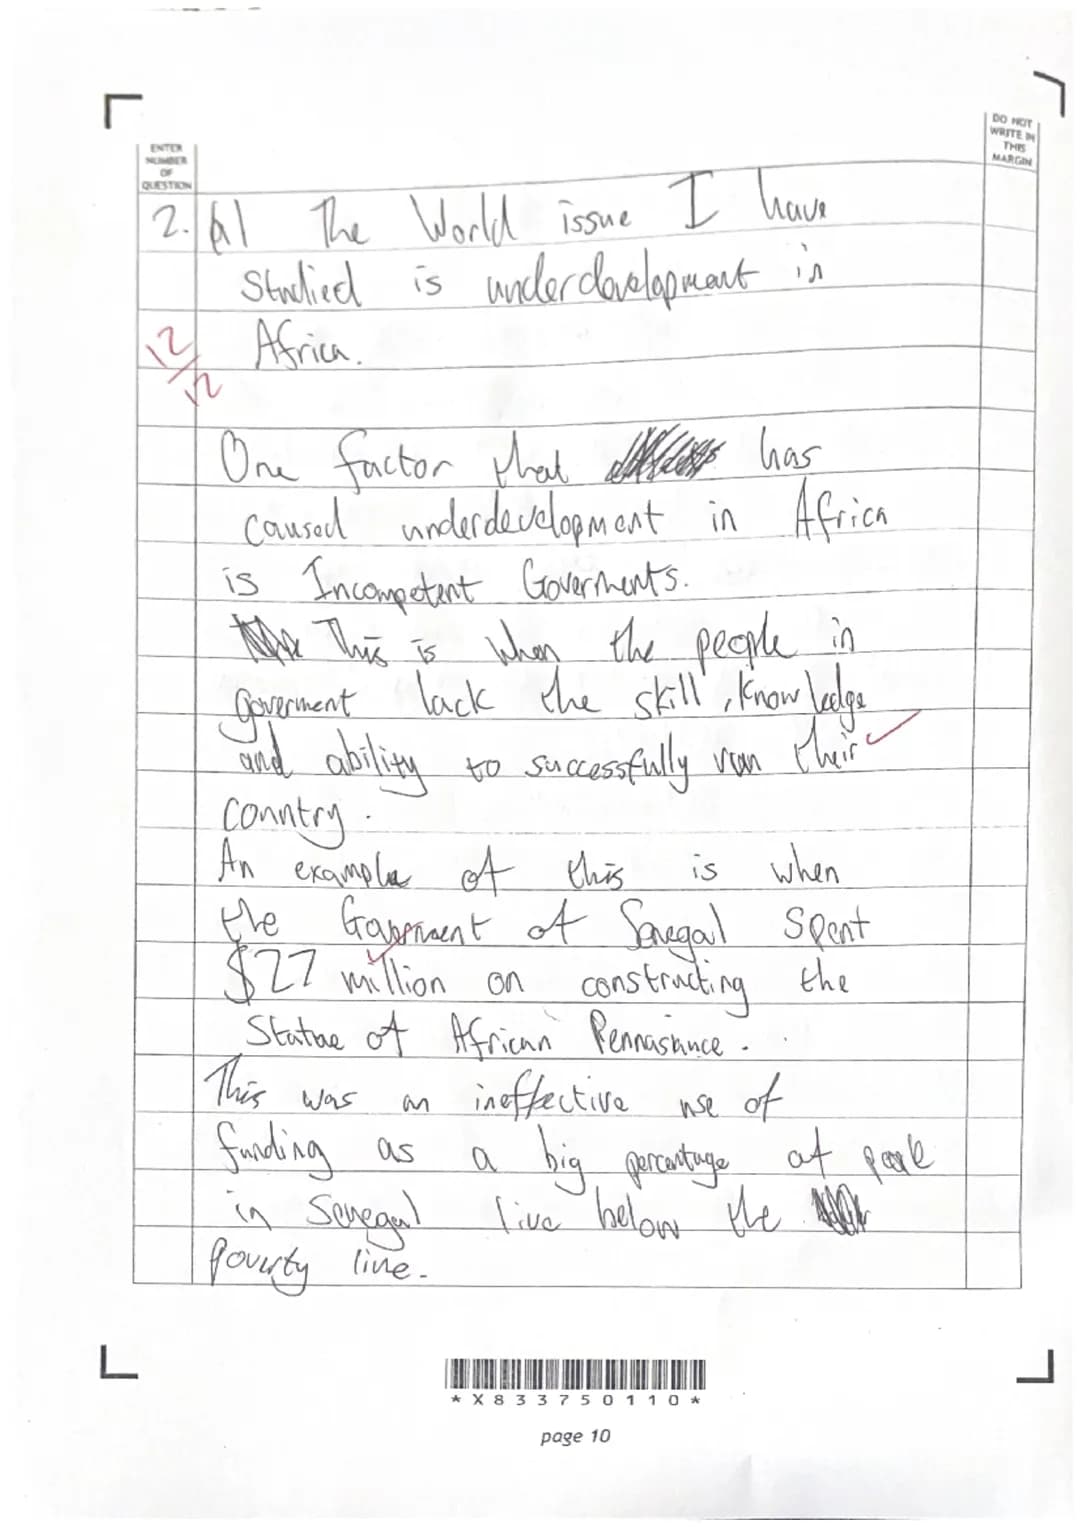 DO NOT
WRITE IN
THIS
MARGIN
ENTER
NUMBER
OF
QUESTION
2. a) The World issue I have
Studied is underdevelopment in
Africa.
12/12
One factor that has
caused underdevelopment in Africa
is Incompetent Goverments.
This is when the people in
goverment lack the skill, knowledge
and ability to successfully run their
country.
An example of this is when
the Goverment of Senegal Spent
$27 million on constructing the
Statue of African Rennasance.
This was an ineffective use of
funding as a big percentage of
in Senegal live below the
poverty line.
* X 8 3 3 7 5 0 1 1 0 *
page 10